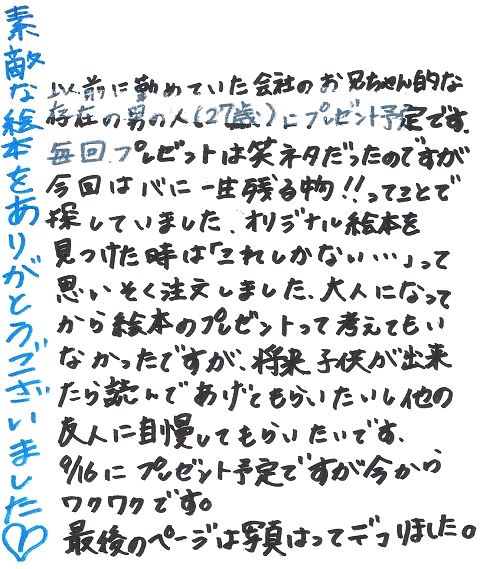 素敵な絵本をありがとうございました♡
以前に勤めていた会社のお兄ちゃん的な
存在の男の人(27歳)にプレゼント予定です。
毎回、プレゼントは笑ネタだったのですが
今回は心に一生残る物!!ってことで
探していました、オリジナル絵本を
見つけた時は「これしかない…」って
思いそく注文しました、大人になって
から絵本のプレゼントって考えてもい
なかったですが、将来子供が出来
たら読んであげてもらいたいし他の
友人に自慢してもらいたいです、
9/16にプレゼント予定ですが今から
ワクワクです。
最後のページは写真はってデコりました。